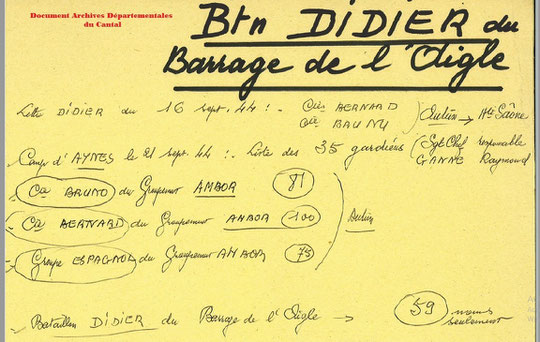 Document Archives Départementales
du Cantal
Btn DIDIER du
Barrage de l'Aigle
Lettre DIDIER du 16 sept. 44 : - Cie BERNARD
Cie BRUNO
Autun → Hte Saône
Camp d'AYNES le 21 sept. 44 : - Liste des 35 gardiens (Sgt Chef responsable
GANNE Raymond
- Cie BRUNO du Groupement AMBOR 81
- Cie BERNARD du Groupement AMBOR 100
Autun
- Groupe ESPAGNOL du Groupement AMBOR 75
- Bataillon DIDIER du Barrage de l'Aigle → 59 noms
seulement